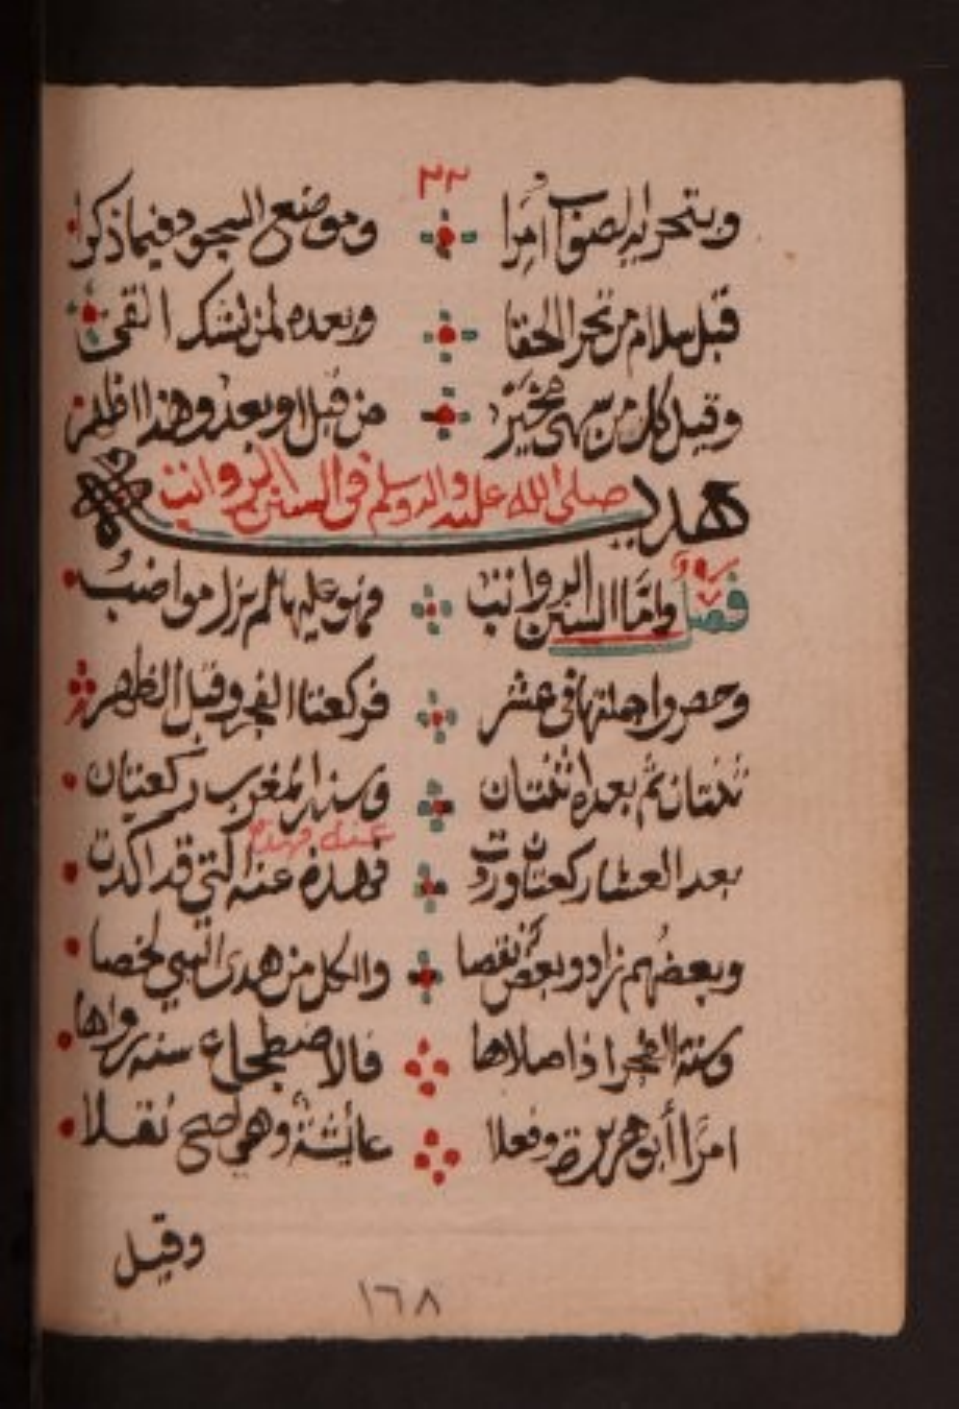 ٣٢
وبتحريه الصواب امرا وموضع السجود فيما ذكرا
قبل سلام من تحرا الحقا وبعده لمن لشك القى
وقيل كل من سهى مخير من قبل او بعد وهذا اظهر
هديه صلى الله عليه واله وسلم في السنن الرواتب
فصل واما السنن الرواتب فهو عليها لم يزل مواضب
وحصروا جملتها في عشر فركعتا الفجر وقبل الظهر
ثنتان ثم بعده ثنتان وسنة المغرب ركعتان
بعد العشا ركعتان وردت فهذه عنه التي قد اكدت
وبعضهم زاد وبعض نقصا والكل من هدى النبي لخصا
وسنة الفجر اذا صلاها فالاضطجاع سنه رواها
امرا أبو هريرة وفعلا عائشة وهي اصح نقلا
وقيل
١٦٨